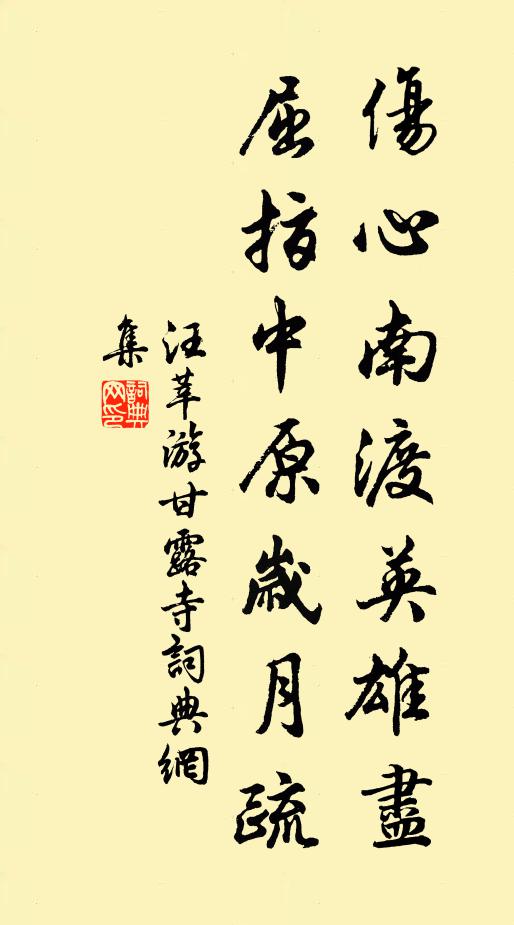 傷心南渡英雄盡
屈指中原歲月疏
汪莘游甘露寺詞典網
集
詞典網印